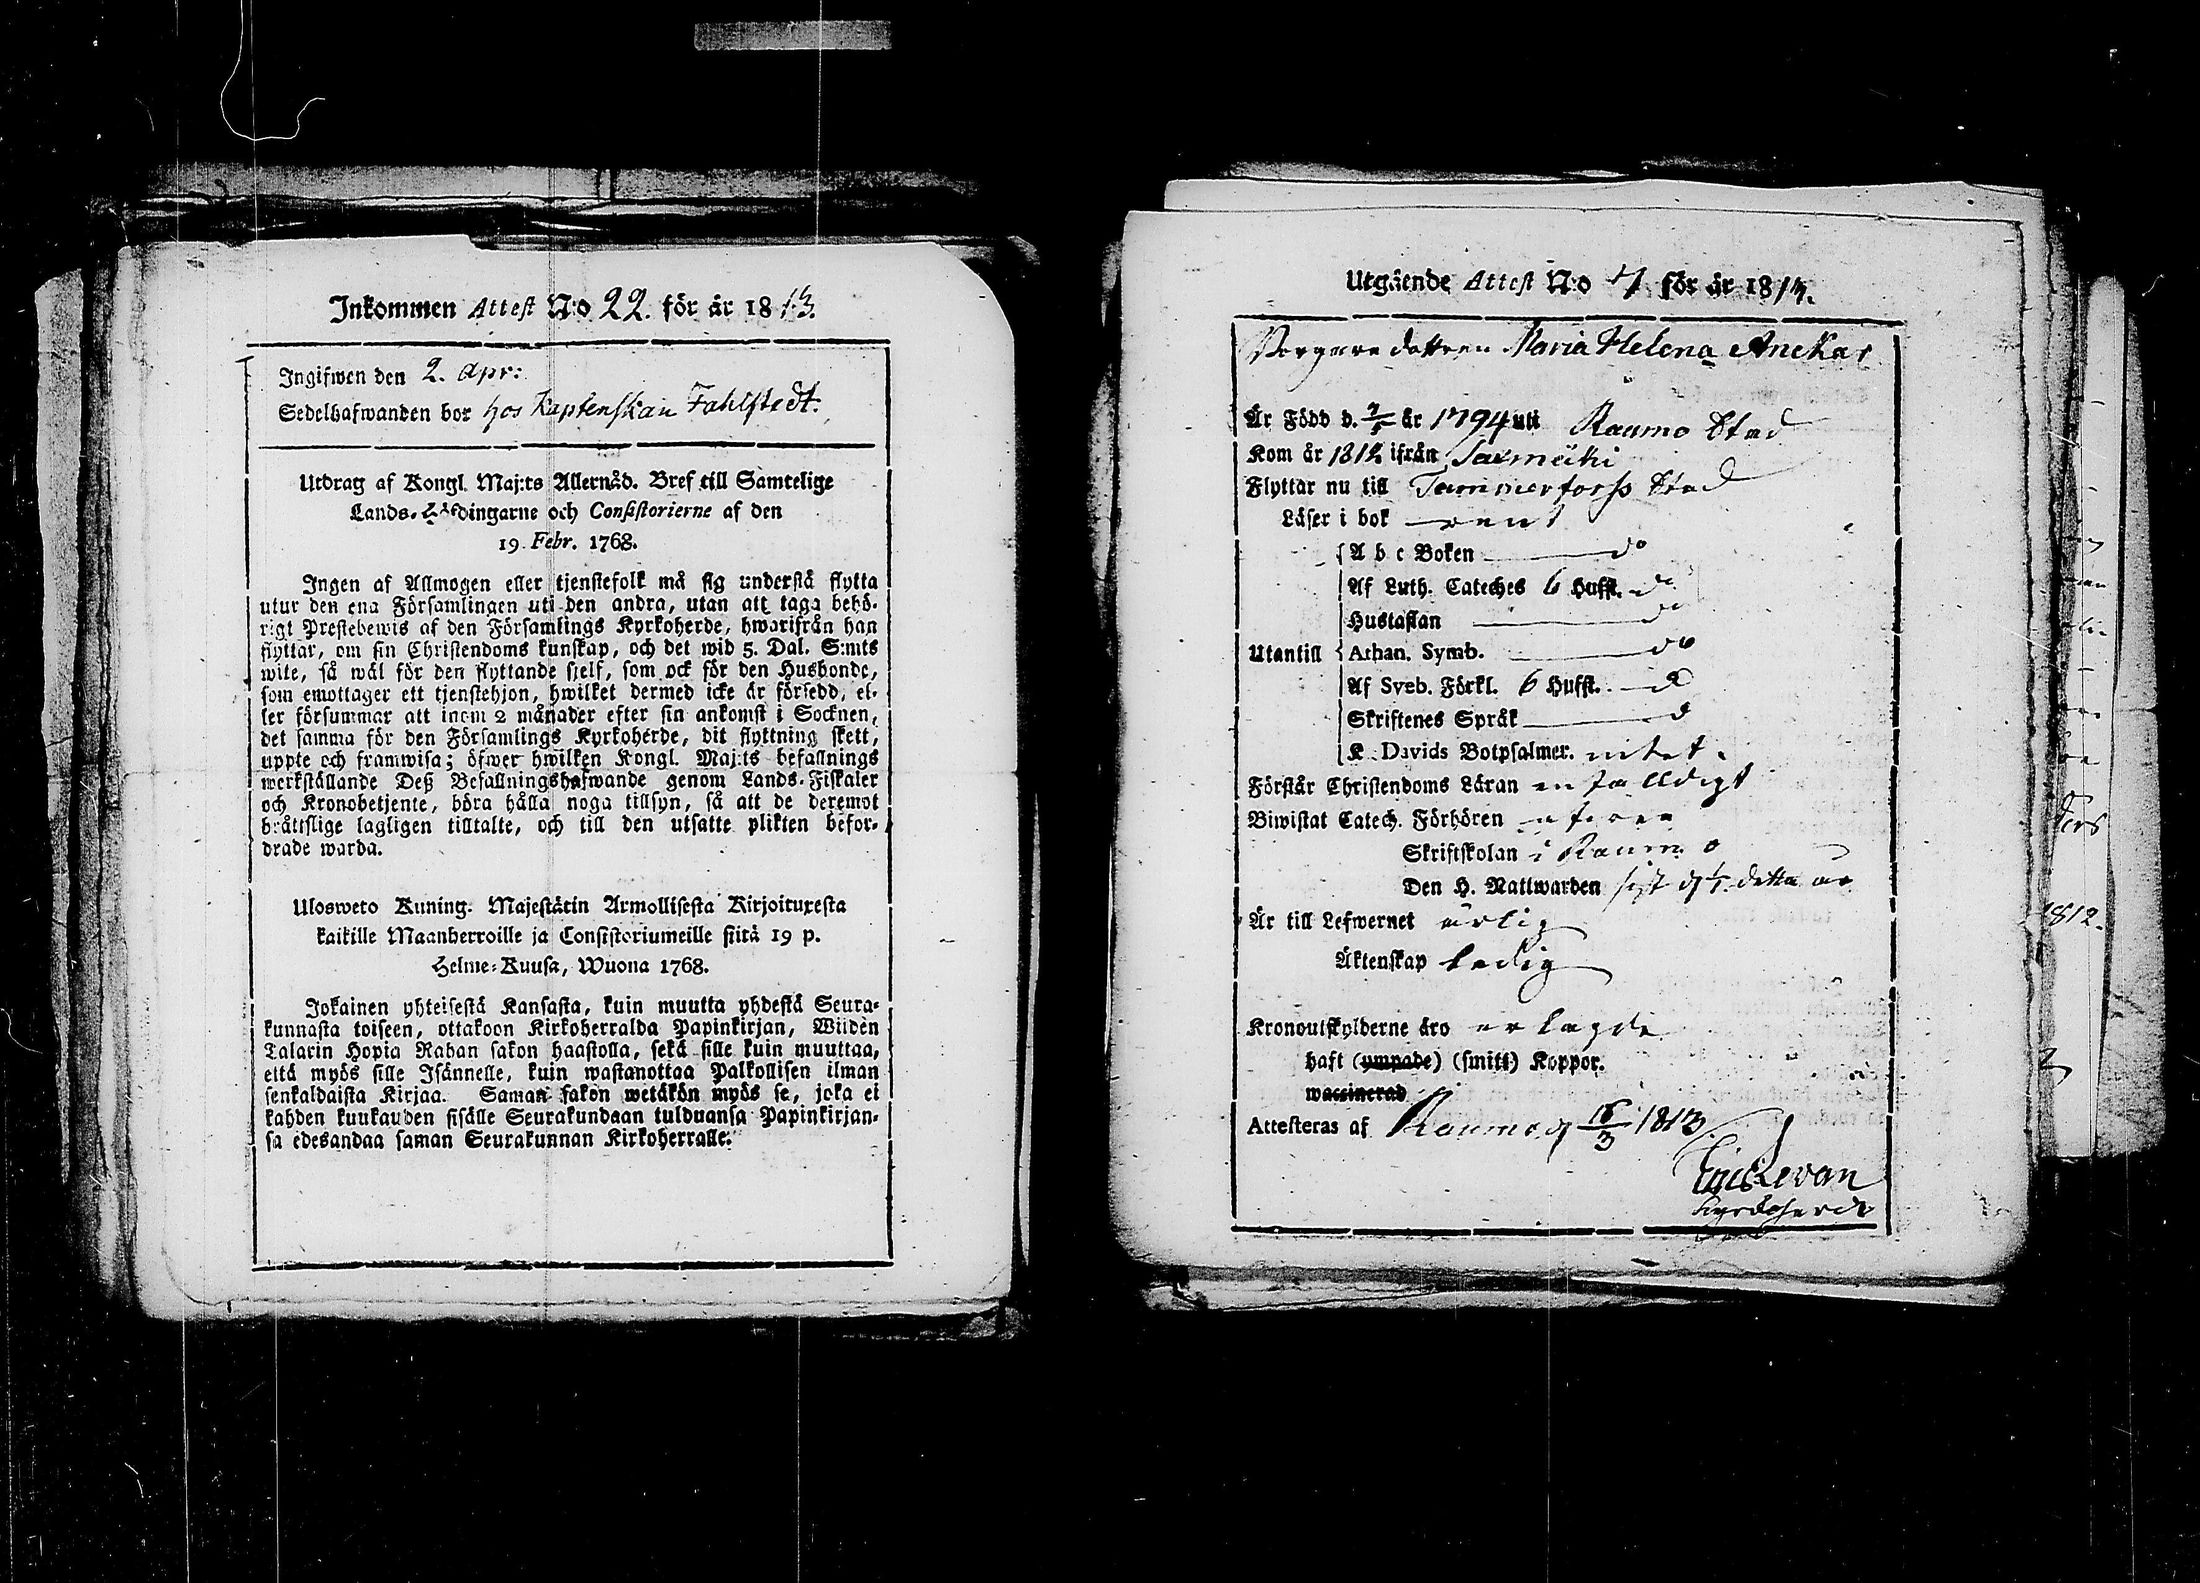 Inkommen Attest N:o 22. för år 1813.
Ingifwen den 2. Apr:
Sedelhafwanden bor hos Kaptenskan Fahlstedt.
Utdrag af Kongl. Maj:ts Allernåd. Bref till Samtelige
Lands-Höfdingarne och Consistorierne af den
19. Febr. 1768.
Ingen af Allmogen eller tjenstefolk må sig understå flytta
utur den ena Församlingen uti den andra, utan att taga behö-
rigt Prestebewis af den Församlings Kyrkoherde, hwarifrån han
flyttar, om sin Christendoms kunskap, och det wid 5. Dal. S:mts
wite, så wäl för den flyttande sjelf, som ock för den Husbonde,
som emottager ett tjenstehjon, hwilket dermed icke är försedd, el-
ler försummar att inom 2 månader efter sin ankomst i Socknen,
det samma för den Församlings Kyrkoherde, dit flyttning skett,
uppte och framwisa; öfwer hwilken Kongl. Maj:ts befallnings
werkställande Deß Befallningshafwande genom Lands-Fiskaler
och Kronobetjente, böra hålla noga tillsyn, så att de deremot
bråttslige lagligen tilltalte, och till den utsatte plikten befor-
drade warda.
Ulosweto Kuning. Majestätin Armollisesta Kirjoituxesta
kaikille Maanherroille ja Consistoriumeille siitä 19 p.
Helme-Kuusa, Wuona 1768.
Jokainen yhteisestä Kansasta, kuin muutta yhdestä Seura-
kunnasta toiseen, ottakoon Kirkoherralda Papinkirjan, Wiiden
Talarin Hopia Rahan sakon haastolla, sekä sille kuin muuttaa,
että myös sille Isännelle, kuin wastanottaa Palkollisen ilman
senkaldaista Kirjaa. Saman sakon wetäkön myös se, joka ei
kahden kuukauden sisälle Seurakundaan tulduansa Papinkirjan-
sa edesandaa saman Seurakunnan Kirkoherralle.
Utgående Attest N:o 7 för år 1813.
Borgaredottren Maria Helena Anckar
Är Född d. 7/5 år 1794 uti Raumo Stad
Kom år 1812 ifrån
Flyttar nu till Tammerforss Stad
Läser i bok rent
A b c Boken do
Af Luth. Cateches 6 Hufst. do
Hustaflan do
Utantill Athan. Symb. do
Af Sveb. Förkl. 6 Hufst. d
Skriftenes Språk d
K. Davids Botpsalmer. intet.
Förstår Christendoms Läran enfalldigt
Biwistat Catech. Förhören
Skriftskolan i Raumo
Den H. Nattwarden sist d 1/1 detta år
Är till Lefwernet ärlig
Äktenskap ledig
Kronoutskylderne äro erlagde
haft (ympade) (smitt) Koppor.
waccinerad
Attesteras af Raumo d 16/3 1813
Eric Levan
Kyrckoherde
1812.